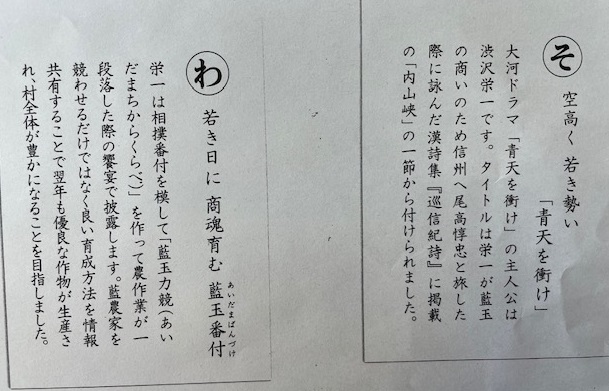 そ
空高く 若き勢い
「青天を衝け」
大河ドラマ「青天を衝け」の主人公は
渋沢栄一です。タイトルは栄一が藍玉
の商いのため信州へ尾高惇忠と旅した
際に詠んだ漢詩集『巡信紀詩』に掲載
の「内山峡」の一節から付けられました。
わ
若き日に 商魂育む 藍玉番付
あいだまばんづけ
栄一は相撲番付を模して「藍玉力競(あい
だまちからくらべ)」を作って農作業が一
段落した際の饗宴で披露します。藍農家を
競わせるだけではなく良い育成方法を情報
共有することで翌年も優良な作物が生産さ
れ、村全体が豊かになることを目指しました。